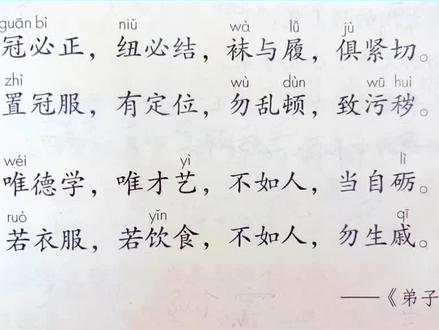 guān bì niǔ wà lǚ jù
冠必正，纽必结，袜与履，俱紧切。
zhì wù dùn wū huì
置冠服，有定位，勿乱顿，致污秽。
wéi yì lì
唯德学，唯才艺，不如人，当自砺。
ruò yǐn qī
若衣服，若饮食，不如人，勿生戚。
——《弟子